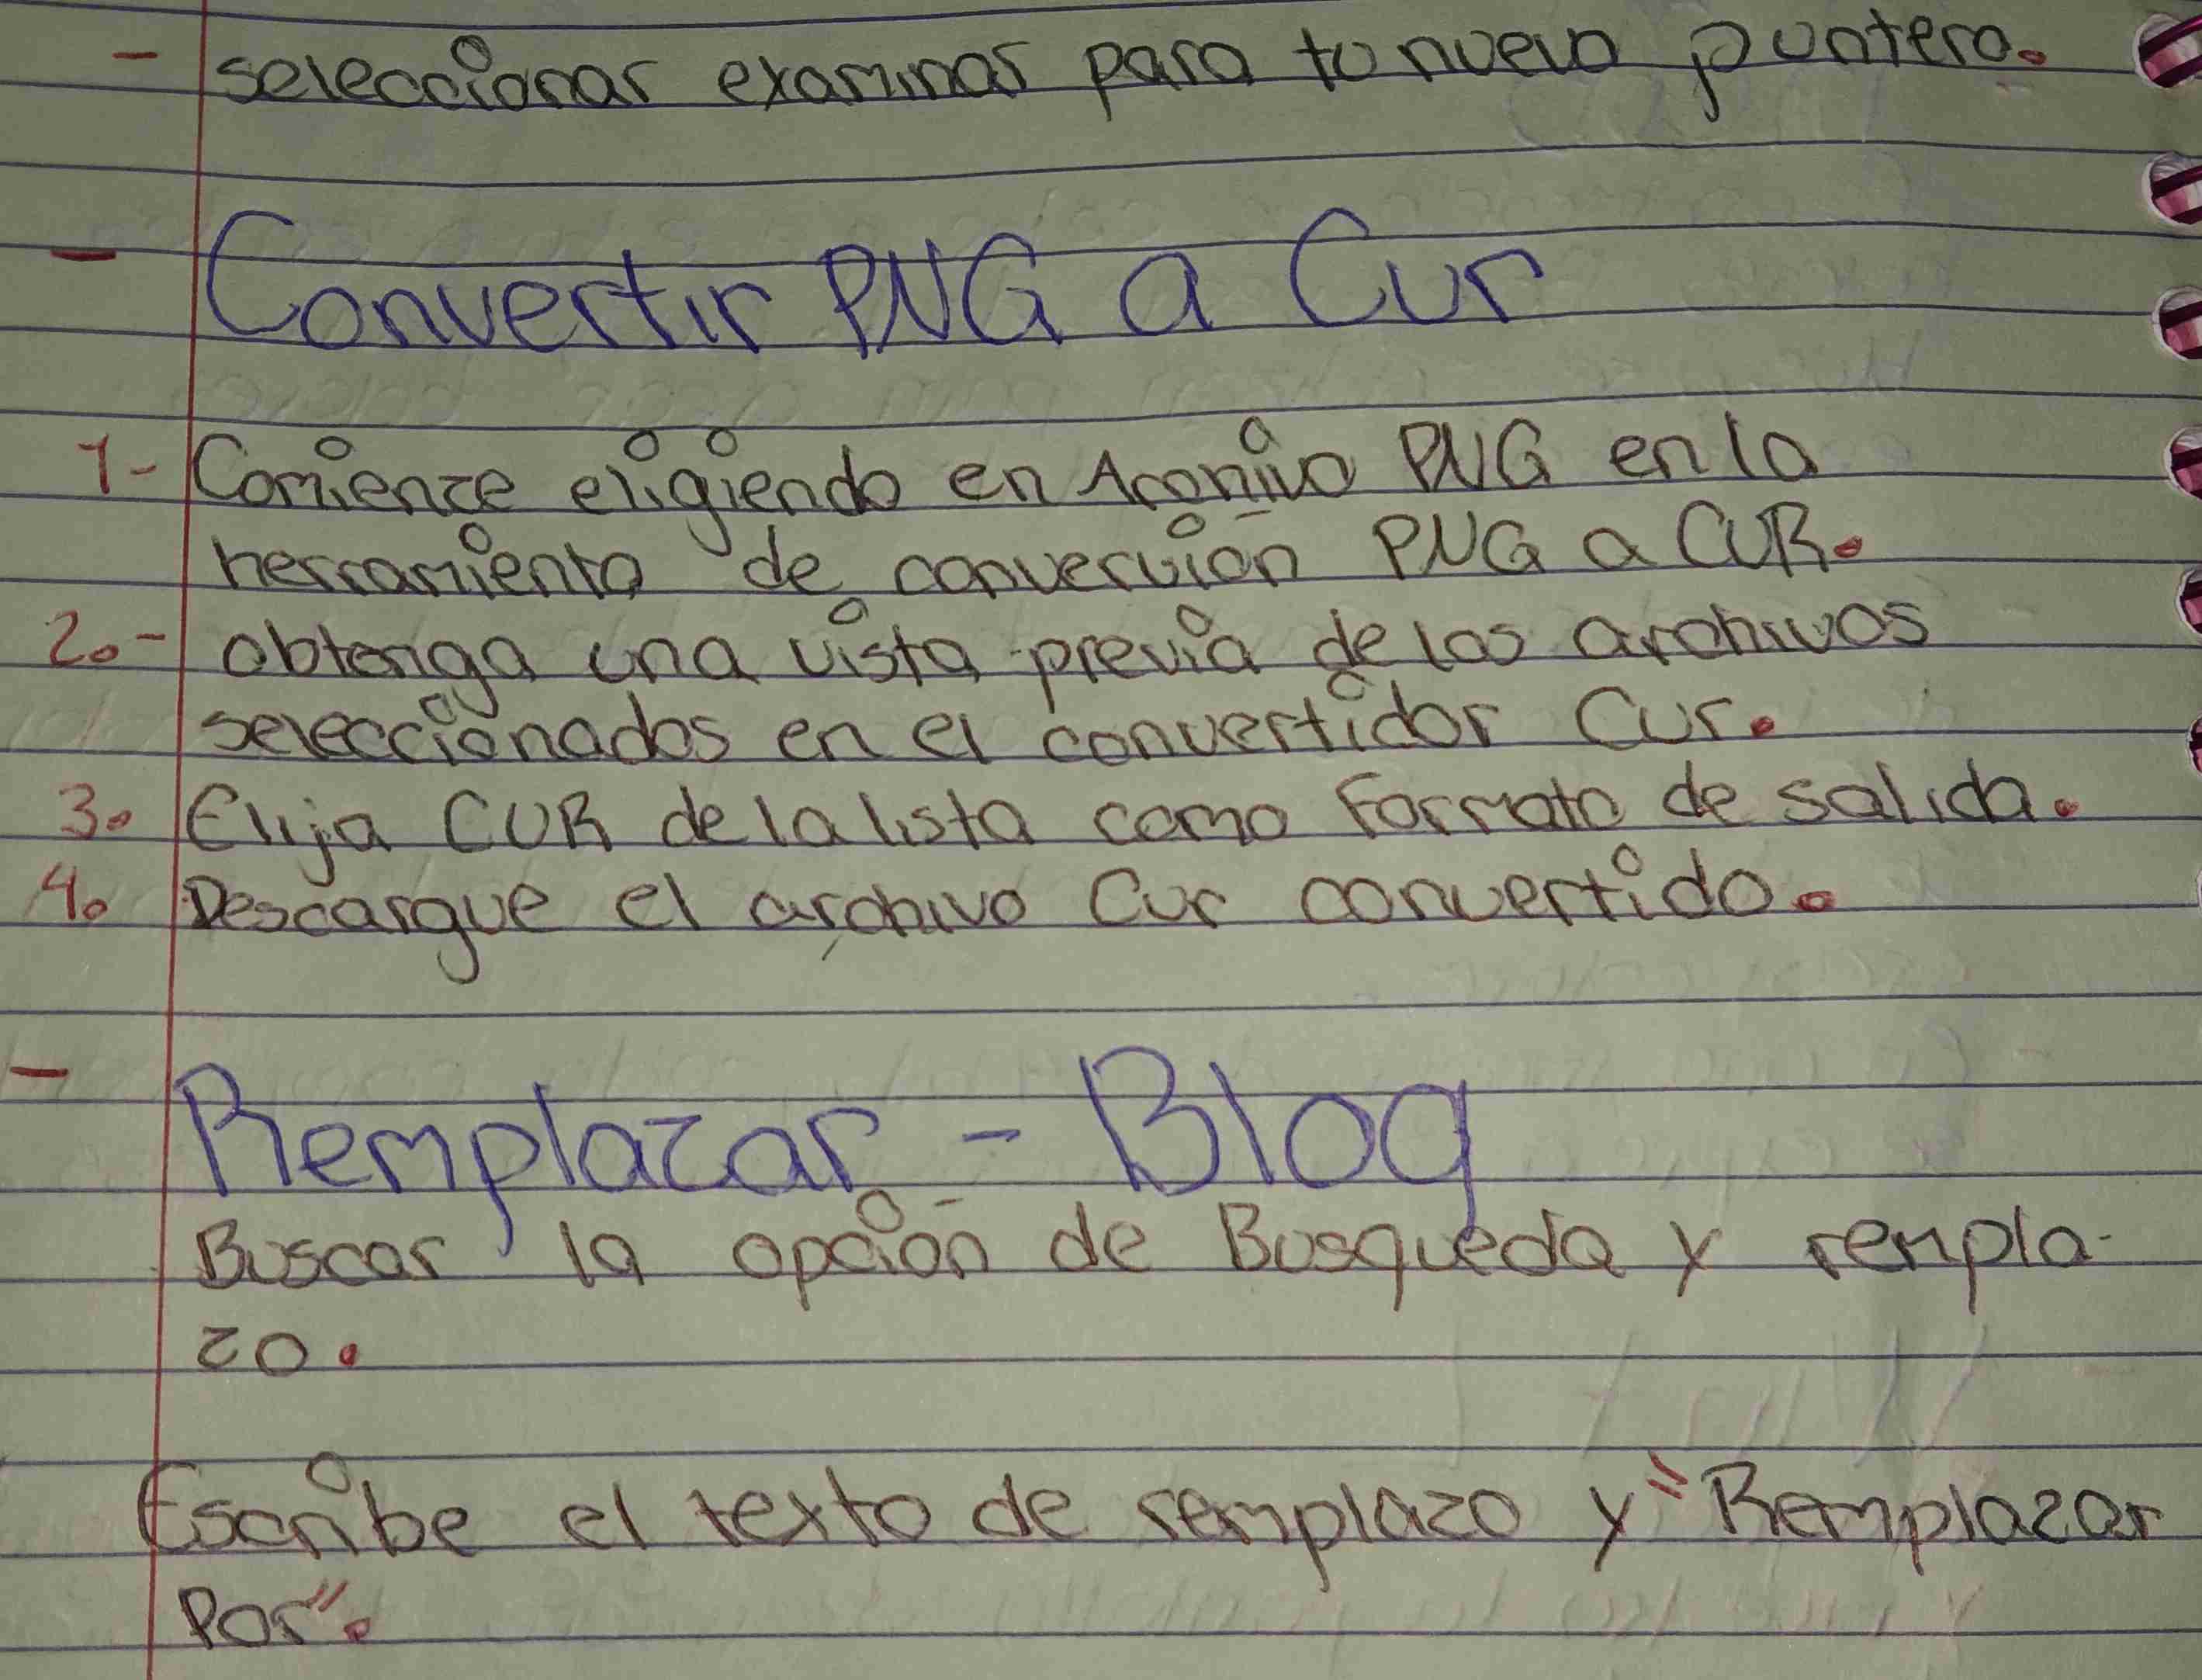 - seleccionar examinar para tu nuevo puntero.
- Convertir PNG a Cur
1- Comience eligiendo en PNG en la
herramienta de convervión PNG a CUR.
2.- obtenga una vista previa de los archivos
seleccionados en el convertidor Cur.
3. Elija CUR de la lista como Formato de salida.
4. Descargue el archivo Cur convertido.
- Remplazar - Blog
Buscar la opción de Busqueda y rempla-
zo.
Escribe el texto de remplazo y "Remplazar
Por".